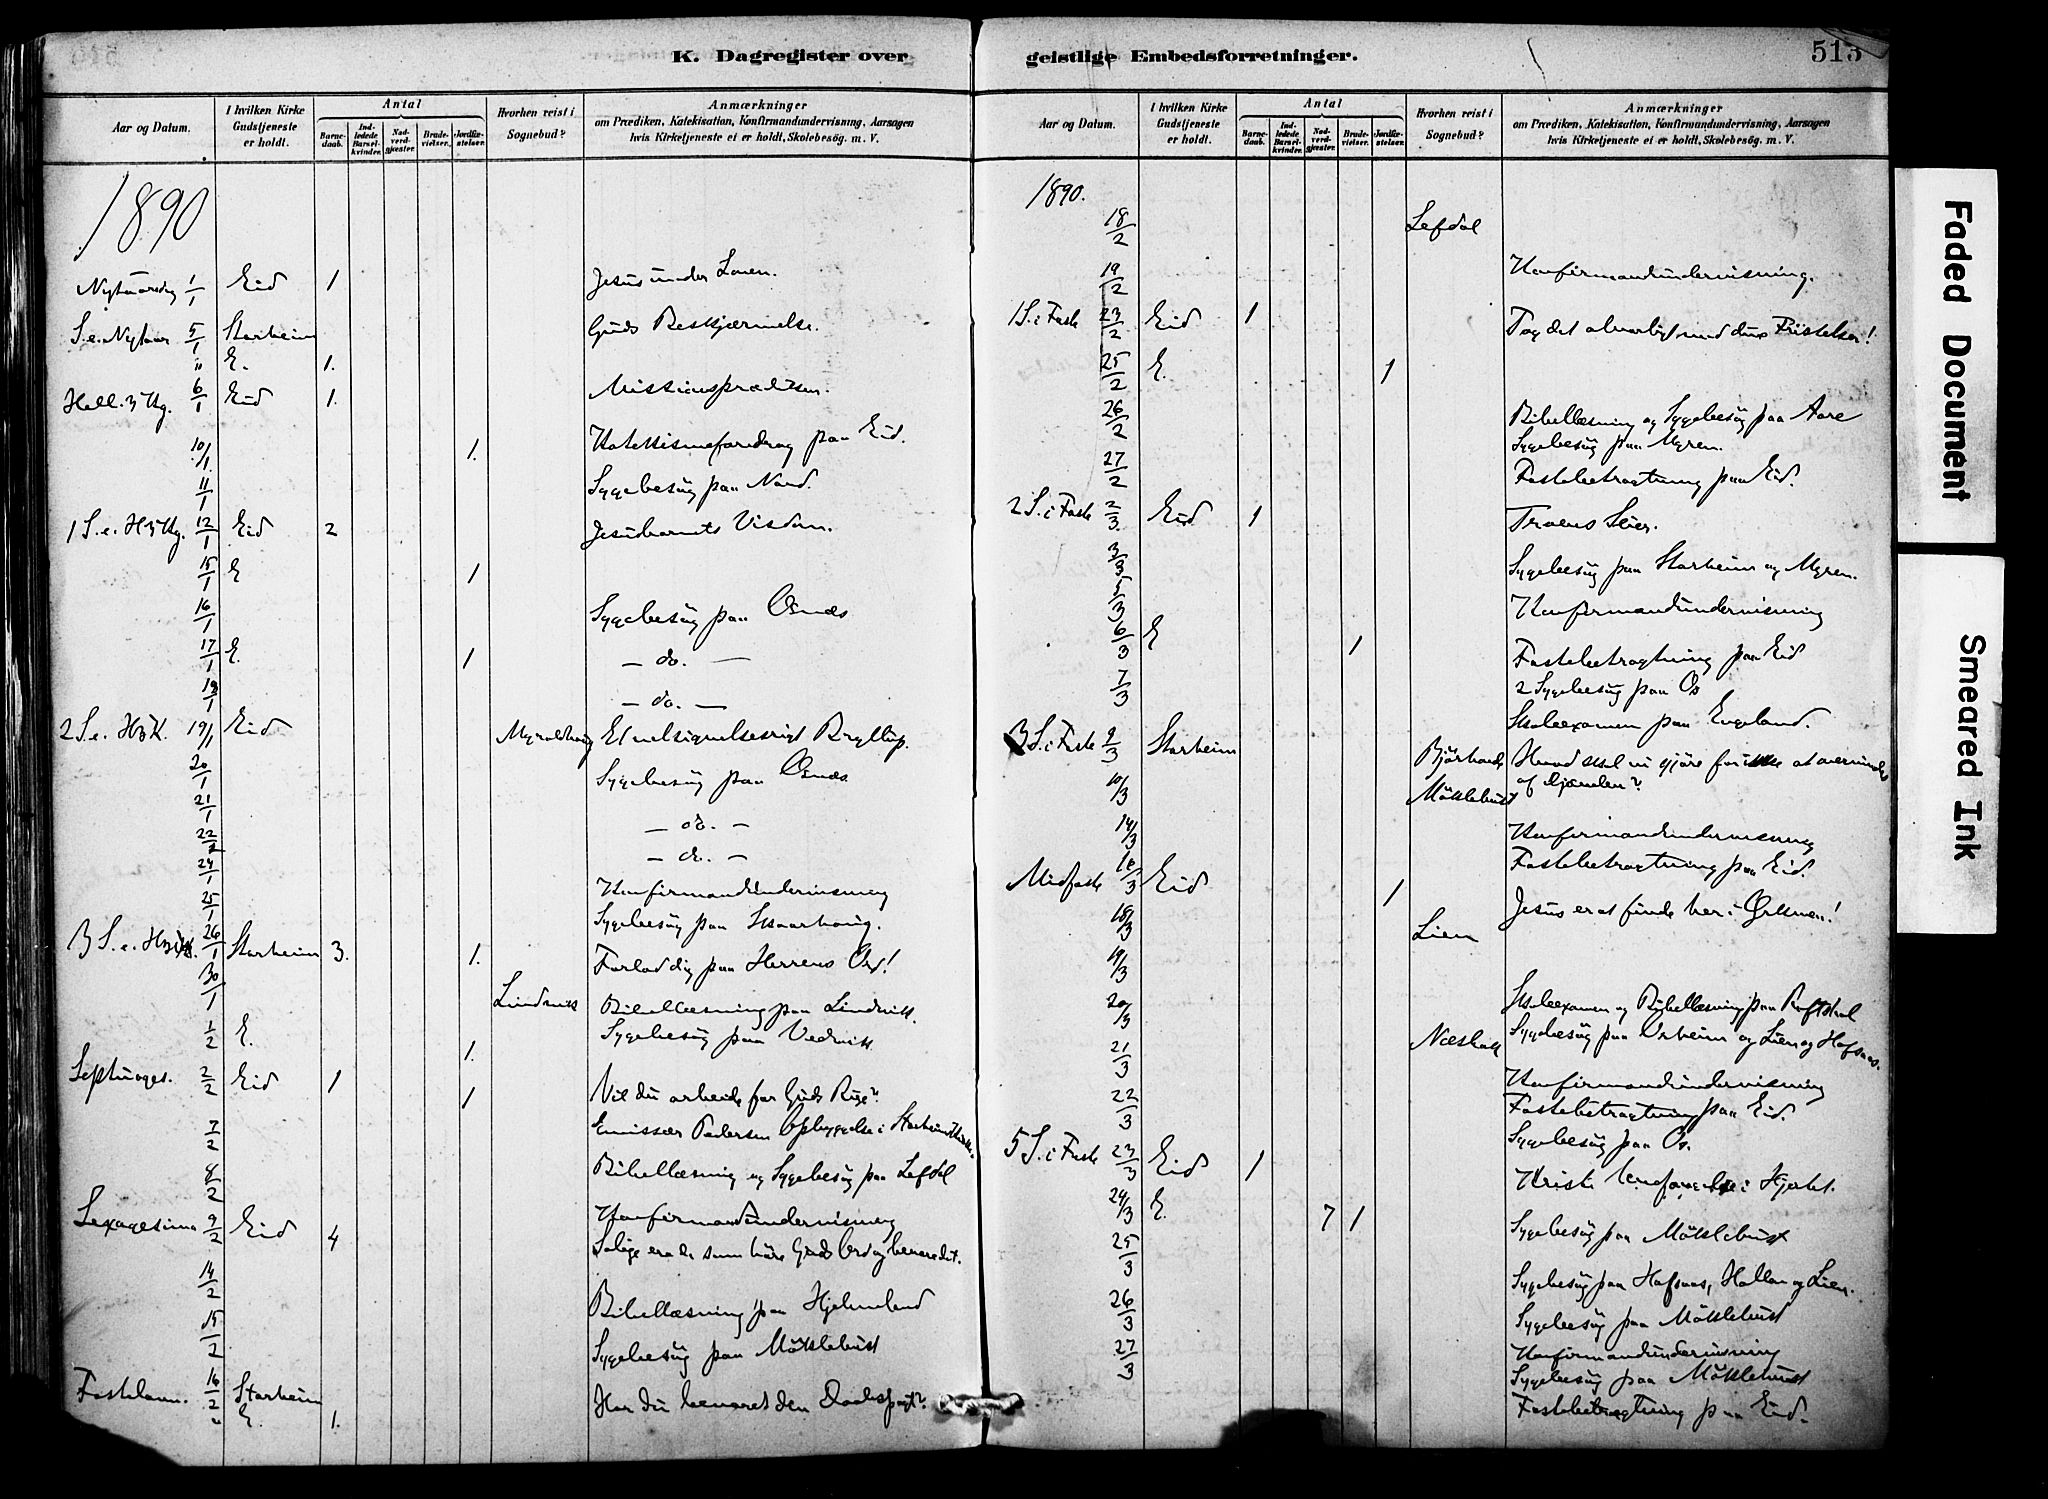 K. Dagregister over geistlige Embedsforretninger.
513
Aar og Datum.
I hvilken Kirke Gudstjeneste er holdt.
Antal
Barnedaab.
Indledede Barselkvinder.
Nadverdgjæster.
Brudevielser.
Jordfæstelser.
Hvorhen reist i Sognebud?
Anmærkninger
om Prædiken, Katekisation, Konfirmandundervisning, Aarsagen
hvis Kirketjeneste ei er holdt, Skolebesøg. m. V.
1890
Nytaarsdag 1/1 Eid 1 Jesus under Loven.
S.e. Nytaar 5/1 Starheim Guds Beskjærmelse.
" E. 1.
Hell. 3 Kg. 6/1 Eid 1. Missionsprædiken.
10/1 1. Katekismeforedrag paa Eid.
11/1 Sygebesøg paa Nord.
1 S.e. H3Kg. 12/1 Eid 2 Jesubarnets Visdom.
15/1 E 1
16/1 Sygebesøg paa Osnes
17/1 E. 1 — do. —
18/1 — do. —
2 S.e. H3K. 19/1 Eid Et velsignelsesrigt Bryllup.
20/1 Sygebesøg paa Osnes
21/1 — do. —
22/1 — do. —
24/1 Konfirmandundervisning
25/1 Sygebesøg paa Skaarhaug.
3 S.e. H3K. 26/1 Starheim 3. 1. Forlad dig paa Herrens Ord!
30/1 Lindvik Bibellæsning paa Lindvik.
1/2 E. 1. Sygebesøg paa Vedvik
Septuages. 2/2 Eid 1 1 Vil du arbeide for Guds Rige?
7/2 Emissær Pedersen Opbyggelse i Starheim
8/2 Bibellæsning og Sygebesøg paa Lefdal
Sexagesima 9/2 Eid 4 Konfirmandundervisning
Salige er de som høre Guds Ord og bevare det.
14/2 Bibellæsning paa Hjelmeland
15/2 Sygebesøg paa Möklebust
Fastelavn. 16/2 Starheim Har du bevaret den Daabspagt?
" E. 1.
Aar og Datum.
I hvilken Kirke Gudstjeneste er holdt.
Antal
Barnedaab.
Indledede Barselkvinder.
Nadverdgjæster.
Brudevielser.
Jordfæstelser.
Hvorhen reist i Sognebud?
Anmærkninger
om Prædiken, Katekisation, Konfirmandundervisning, Aarsagen
hvis Kirketjeneste ei er holdt, Skolebesøg. m. V.
1890.
18/2 Lefdal
19/2 Konfirmandundervisning.
1 S. i Faste 23/2 Eid 1 Tag det alvorligt med dine Fristelser!
25/2 E. 1
26/2 Bibellæsning og Sygebesøg paa Aare
Sygebesøg paa Myren.
27/2 Fastebetragtning paa Eid.
2 S. i Faste 2/3 Eid 1 Troens Seier.
3/3 Sygebesøg paa Starheim og Myren.
5/3 Konfirmandundervisning
6/3 E 1 Fastebetragtning paa Eid
7/3 2 Sygebesøg paa Os
Skoleexamen paa Engeland.
3 S. i Faste 9/3 Starheim Hvad skal vi gjøre for ikke at overvindes
10/3 Möklebust af Djævelen?
14/3 Konfirmandundervisning
Fastebetragtning paa Eid.
Midfaste 16/3 Eid 1 Jesus er at finde her i Ørkenen!
18/3 Lien
19/3
20/3 Skoleexamen og Bibellæsning paa
21/3 Sygebesøg paa Orheim og Lien og Hofsaas.
Konfirmandundervisning
22/3 Fastebetragtning paa Eid.
Sygebesøg paa Os.
5 S. i Faste 23/3 Eid 1 Kristi i Hjertet.
24/3 E. 7 1 Sygebesøg paa Möklebust
25/3 Sygebesøg paa Hofsaas, Hollen og Lien.
26/3 Sygebesøg paa Möklebust
27/3 Konfirmandundervisning
Sygebesøg paa Möklebust
Fastebetragtning paa Eid.
Faded Document
Smeared Ink